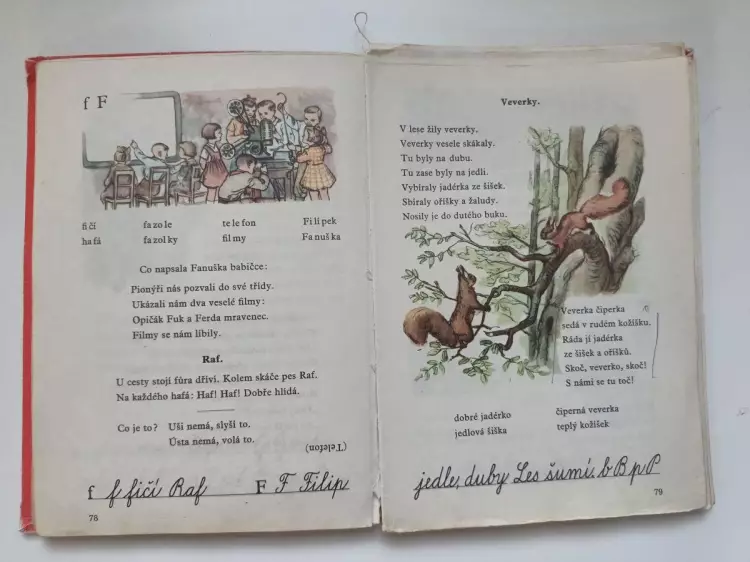 f F
fičí fazole telefon Filipek
hafá fazolky filmy Fanuška
Co napsala Fanuška babičce:
Pionýři nás pozvali do své třídy.
Ukázali nám dva veselé filmy:
Opičák Fuk a Ferda mravenec.
Filmy se nám líbily.
Raf.
U cesty stojí fůra dříví. Kolem skáče pes Raf.
Na každého hafá: Haf! Haf! Dobře hlídá.
Co je to? Uši nemá, slyší to.
Ústa nemá, volá to.
(Telefon)
f f fičí Raf F F Filip
78
Veverky.
V lese žily veverky.
Veverky vesele skákaly.
Tu byly na dubu.
Tu zase byly na jedli.
Vybíraly jadérka ze šišek.
Sbíraly oříšky a žaludy.
Nosily je do dutého buku.
Veverka čiperka
sedá v rudém kožíšku.
Ráda jí jadérka
ze šišek a oříšků.
Skoč, veverko, skoč!
S námi se tu toč!
dobré jadérko čiperná veverka
jedlová šiška teplý kožíšek
jedle, duby Les šumí. b B p P
79